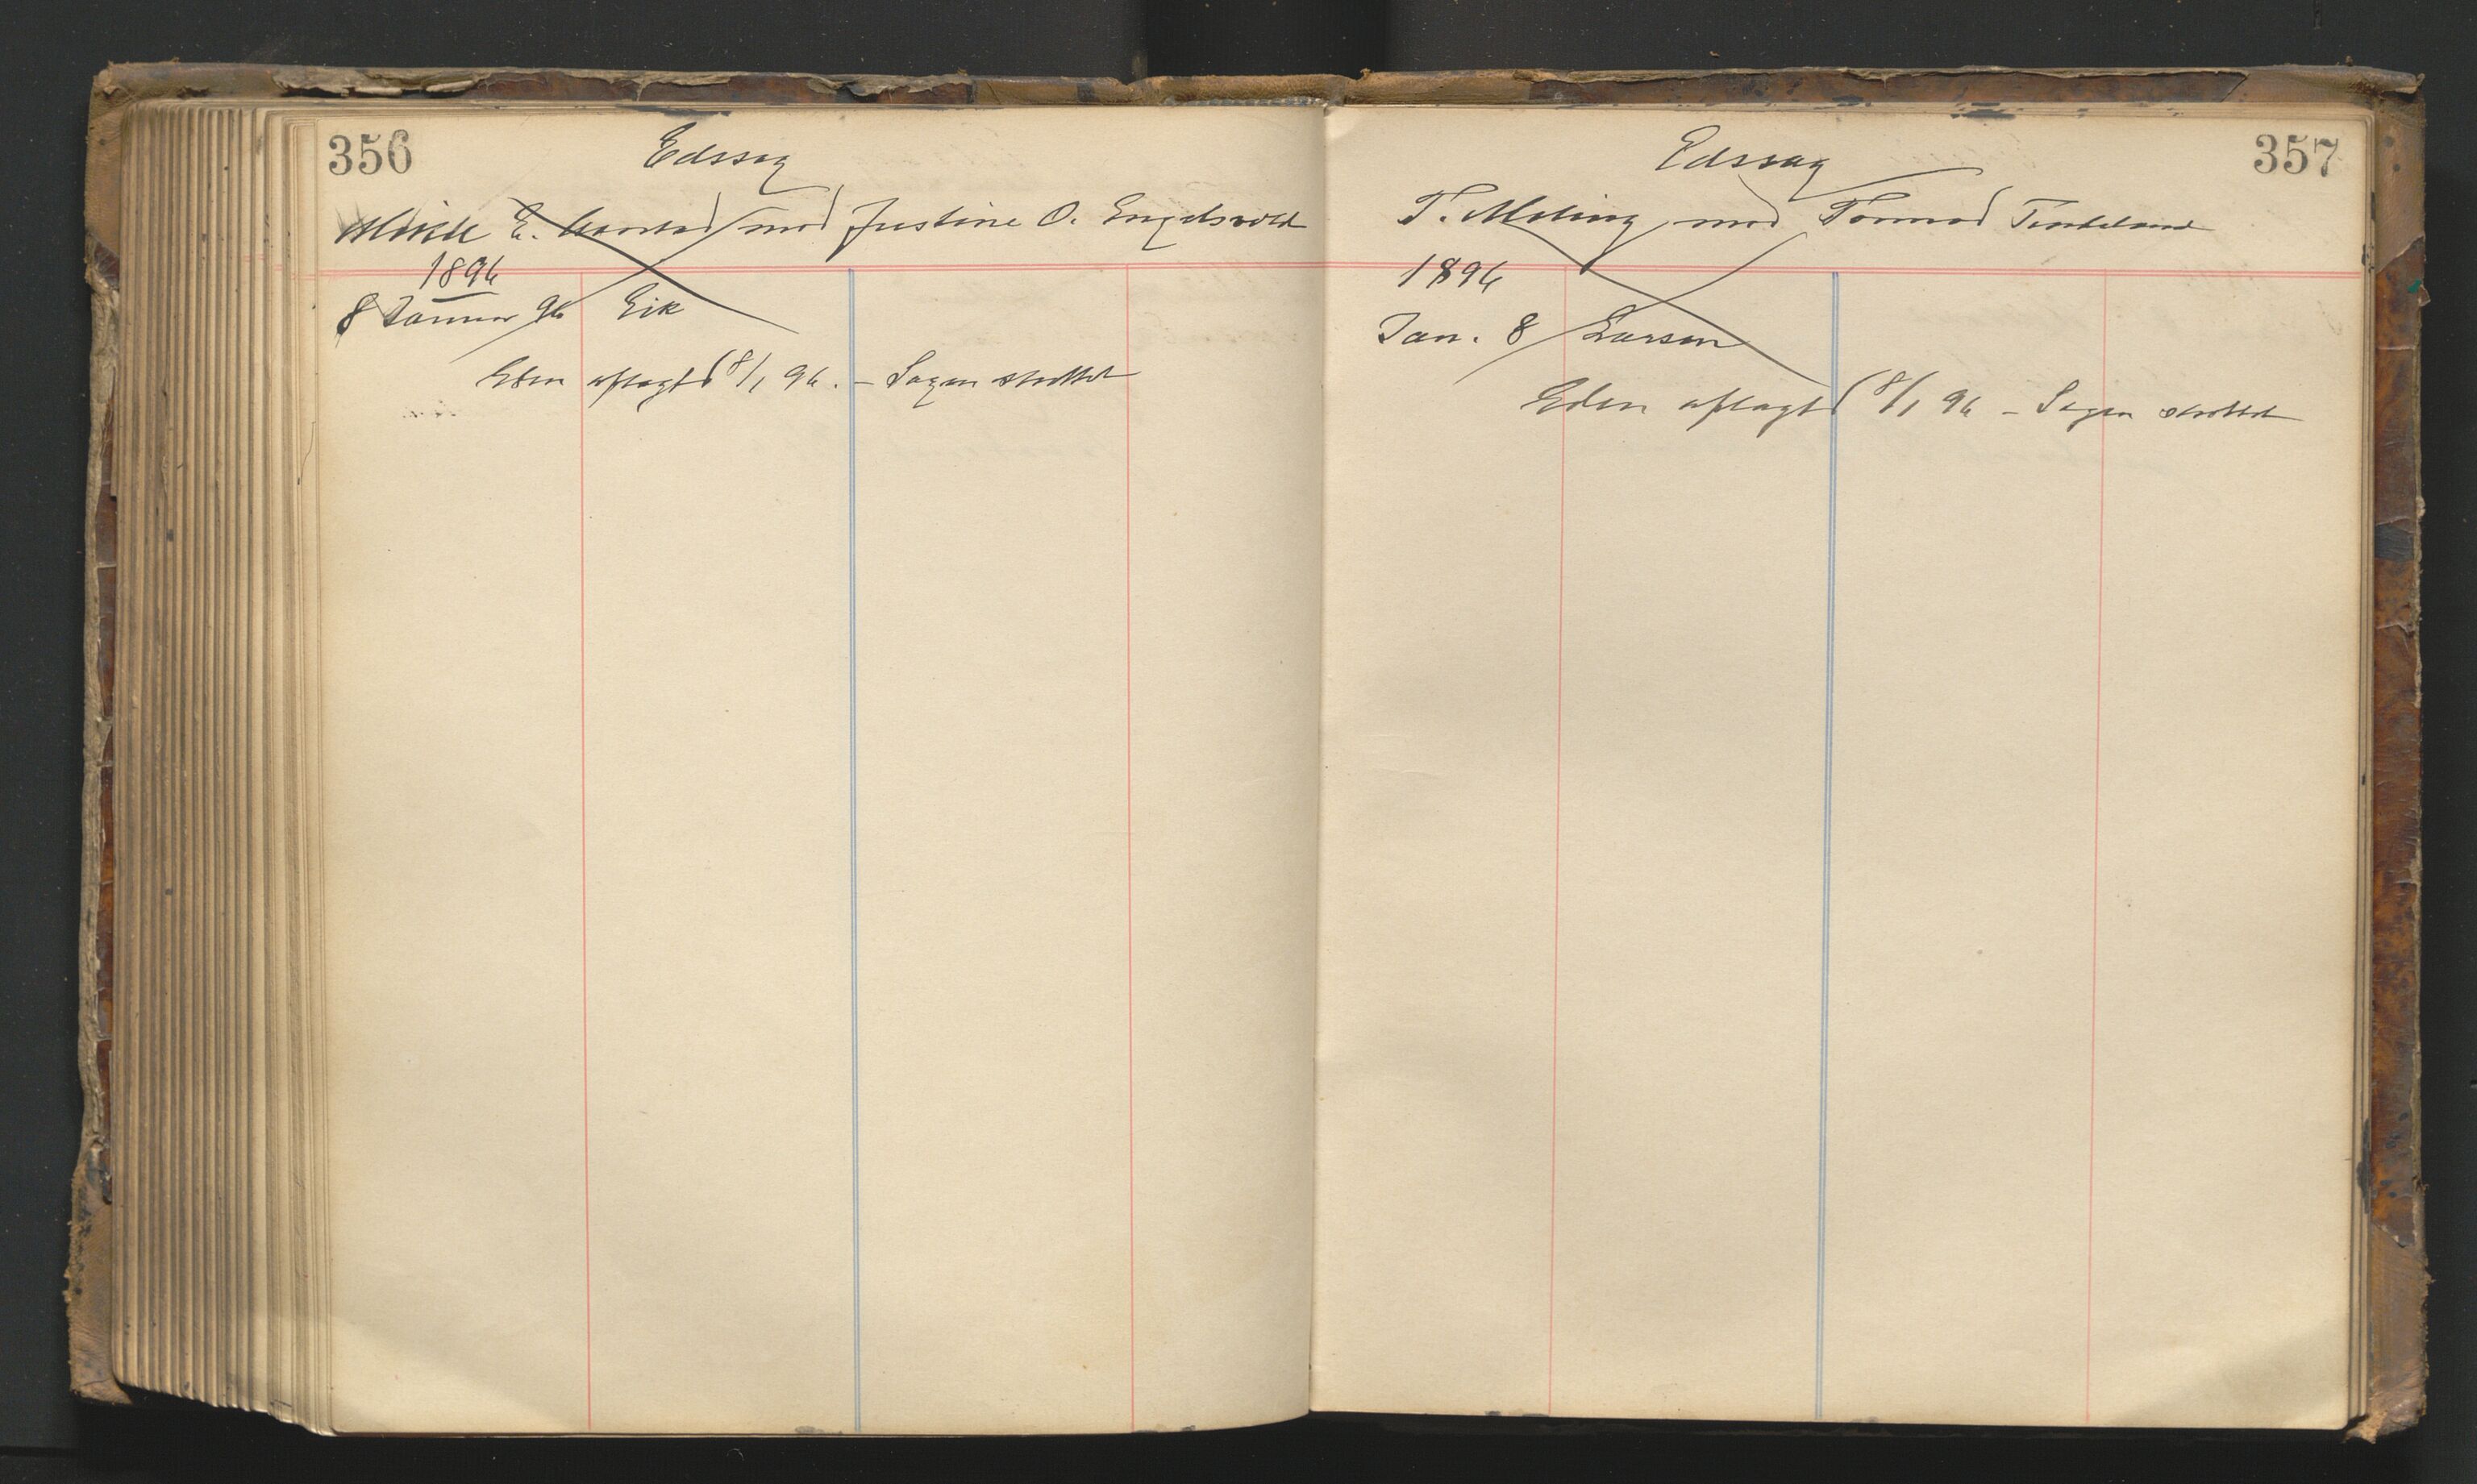 356
Edssag
Mikal E. mod Justine O. Engelsvold
1896
8 Januar 96 Eik
Eden aflagt 8/1 96. – Sagen sluttet
357
Edssag
T. Meling mod Tormod Tindeland
1896
Jan. 8 Larsen
Eden aflagt 8/1 96 – Sagen sluttet